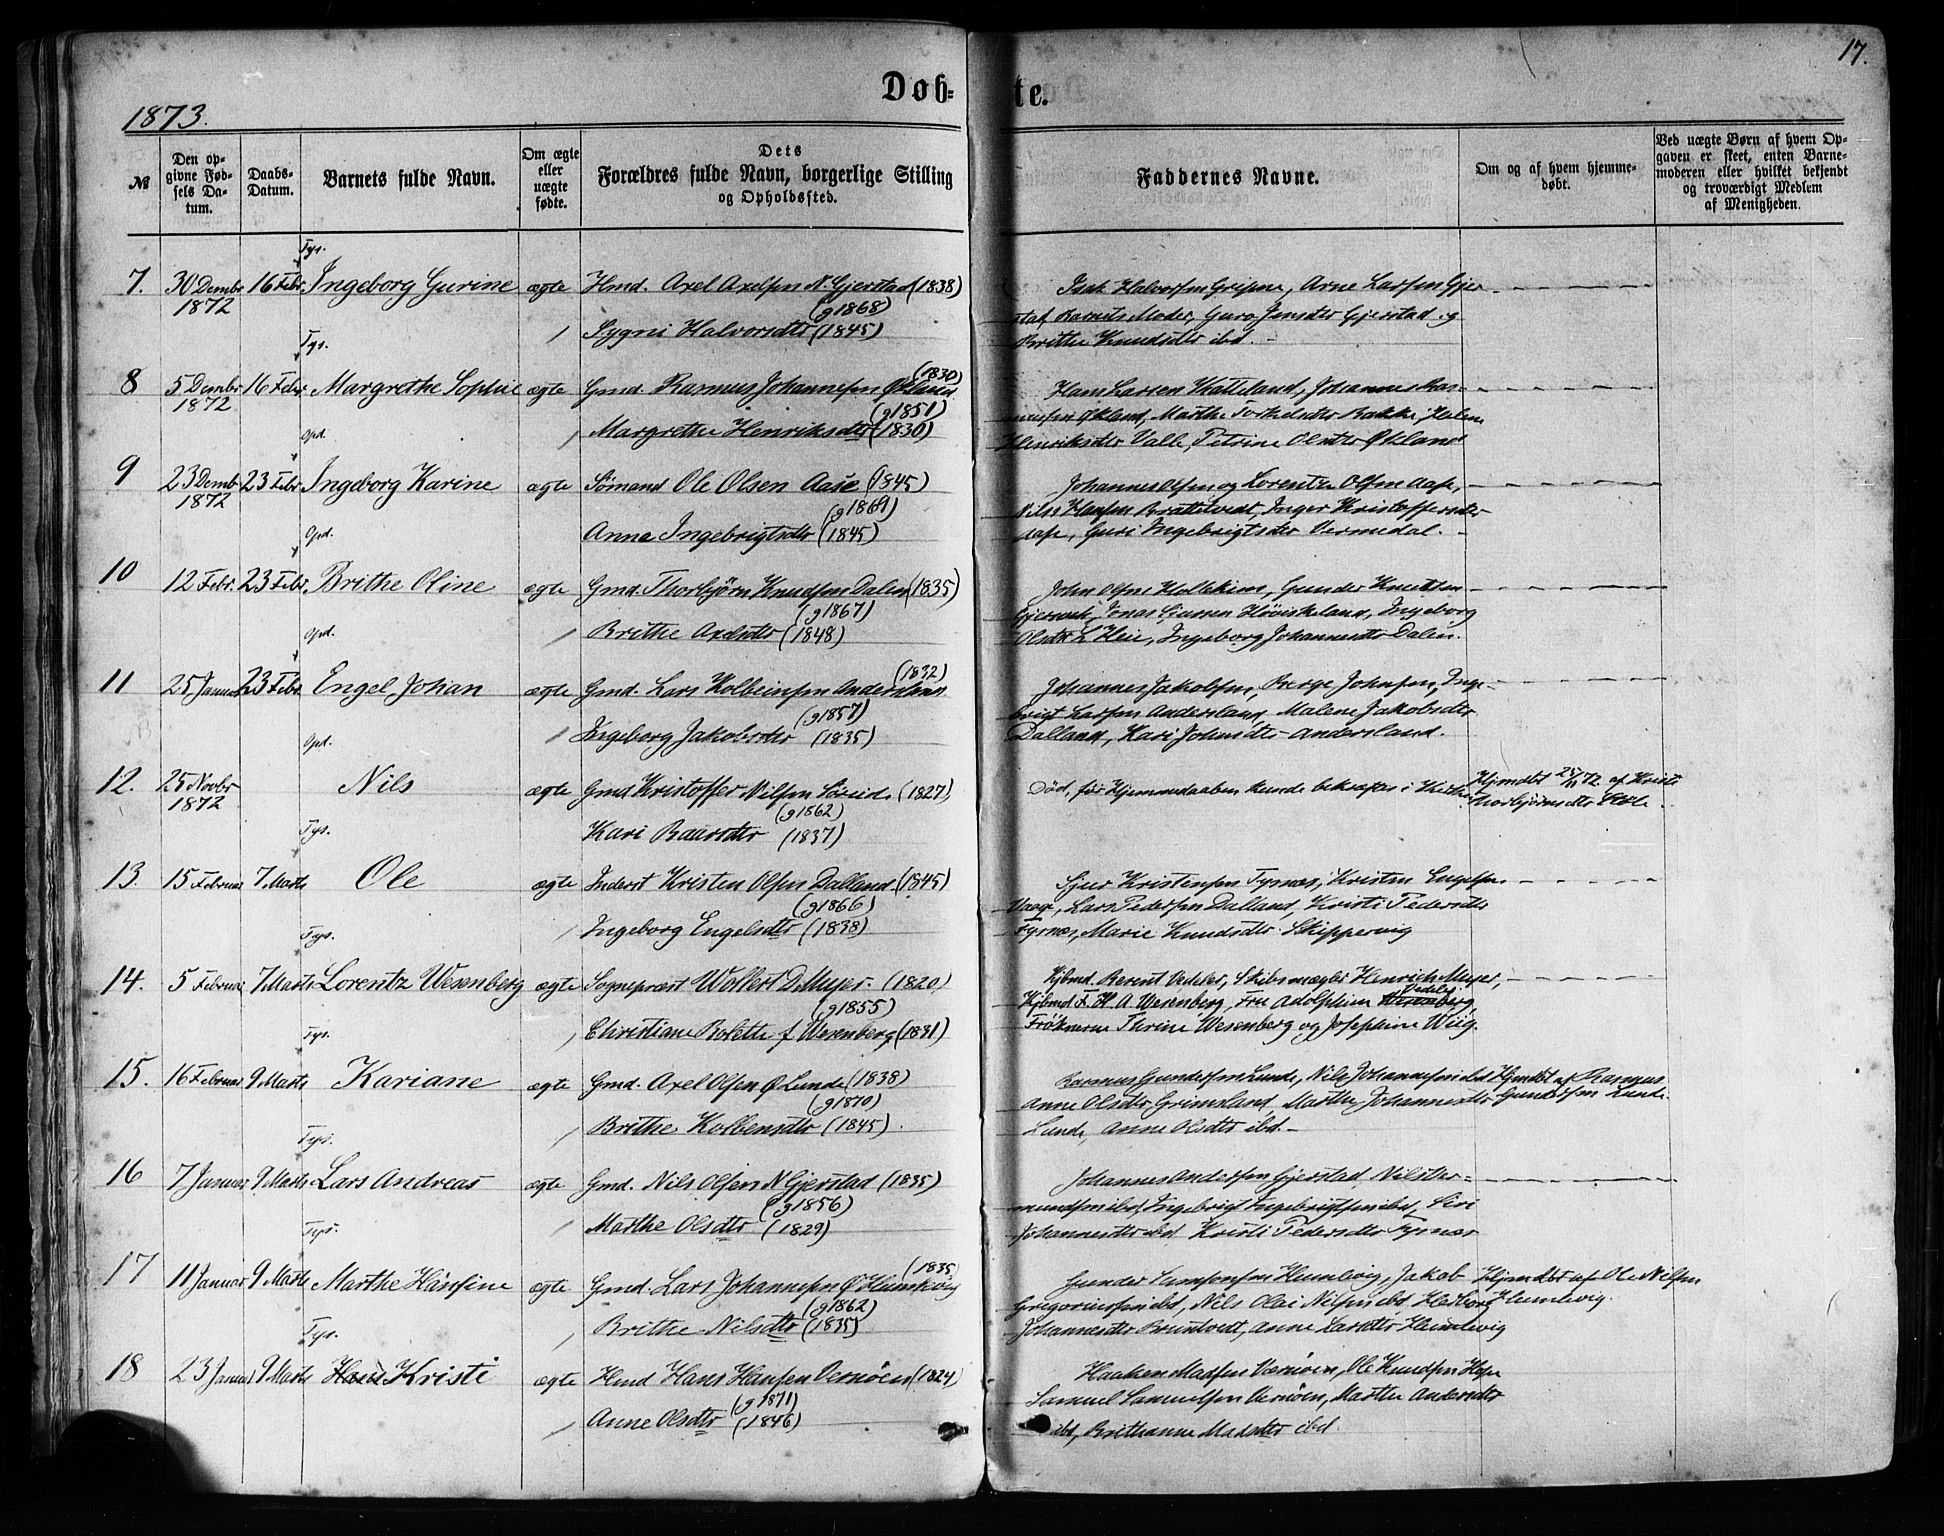 17.
Døb=te.
1873.
№
Den op-
givne Fød-
sels Da-
tum.
Daabs-
Datum.
Barnets fulde Navn.
Om ægte
eller
uægte
fødte.
Dets
Forældres fulde Navn, borgerlige Stilling
og Opholdssted.
Faddernes Navne.
Om og af hvem hjemme-
døbt.
Ved uægte Børn af hvem Op-
gaven er skeet, enten Barne-
moderen eller hvilket bekjendt
og troværdigt Medlem
af Menigheden.
Tys.
7. 30 Dembr 16 Febr. Ingeborg Gurine ægte Hmd. Axel Axelsen N. Gjerstad (1838) Isak Halvorsen Gripne, Arne Larsen Gjer
1872 (g 1868) stad, Barnets Moder, Guro Jensdtr Gjerstad og
Sygni Halvorsdtr (1845) Brithe Knudsdtr ibd.
Tys.
8 5 Dembr 16 Febr Margrethe Sophie ægte Gmd. Rasmus Johannesen Økland (1830) Hans Larsen Hatteland, Johannes Ras-
1872 (g 1851) musen Økland, Marthe Torkelsdtr Bakke, Helen
Margrethe Henriksdtr (1830) Henriksdtr Valle, Petrine Olsdtr Økland
Opd.
9 23 Dembr 23 Febr Ingeborg Karine ægte Sømand Ole Olsen Aase (1845) Johannes Olsen og Lorentze Olsen Aase,
1872 (g 1869) Nils Hansen Brattetvedt, Inger Kristoffersdtr
Anna Ingebrigtsdtr (1845) Aase, Guri Ingebrigtsdtr Vermedal.
Opd.
10 12 Febr. 23 Febr. Brithe Oline ægte Gmd. Thorbjørn Knudsen Dalen (1835) John Olsen Hollekim, Gunder Knudsen
(g 1867) Jonas Høviskeland, Ingeborg
Brithe Axelsdtr (1848) Olsdtr L. Heie, Ingeborg Johannesdtr Dalen.
Opd.
11 25 Januar 23 Febr. Engel Johan ægte Gmd. Lars Kolbeinsen Andersland (1832) Johannes Jakobsen, Børge Johnsen, Inge-
(g 1857) brigt Larsen Andersland, Malene Jakobsdtr
Ingeborg Jakobsdtr (1835) Dalland, Kari Johnsdtr Andersland.
Opd.
12. 25 Novbr Nils ægte Gmd Kristoffer Nilsen Søreid (1827) Død, før Hjemmedaaben kunde bekræftes i Kirken Hjmdbt 25/11 72 af Kristi
1872 (g 1862) Thorbjørnsdtr
Kari Baarsdtr (1837)
Tys.
13. 15 Februar 7 Marts Ole ægte Inderst Kristen Olsen Dalland (1845) Sjur Kristensen Tysnæs, Kristen Engelsen
(g 1866) Vaage, Lars Pedersen Dalland, Kristi Pedersdtr
Ingeborg Engelsdtr (1838) Tysnæs, Marie Knudsdtr Skippervig
Tys.
14. 5 Februar 7 Marts Lorentz Wesenberg ægte Sognepræst Wollert D. Meyer (1820) Kjbmd. Berent Vedeler, Skibsmægler Henrich Meyer,
(g 1855) Kjbmd F. H. A. Wesenberg, Fru Adolphine Wesenberg,
Christiane Bolette f. Wesenberg (1831) Frøknerne Thrine Wesenberg og Josephine Wiig.
Tys.
15. 16 Februar 9 Marts Kariane ægte Gmd. Axel Olsen Ø Lunde (1838) Rasmus Gundersen Lunde, Nils Johannesen ibd Hjmdbt af Rasmus
(g 1870) Anne Olsdtr Grimsland, Marthe Johannesdtr Gundersen Lunde.
Brithe Kolbensdtr (1845). Lunde, Anne Olsdtr ibd.
Tys.
16 7 Januar 9 Marts Lars Andreas ægte Gmd. Nils Olsen N Gjerstad (1835) Johannes Andersen Gjerstad Nils Her-
(g 1856) mundsen ibd, Ingebrigt Ingebrigtsen ibd, Siri
Marthe Olsdtr (1829) Johannesdtr ibd Kristi Pedersdtr Tysnæs
Tys.
17 11 Januar 9 Marts Marthe Hansine ægte Gmd. Lars Johannesen Ø Humlevig (1835 Gunder Samsonsen Humlevig, Jakob Hjmdbt af Ole Nilsen
(g 1862) Gregoriussen ibd, Nils Olai Nilsen ibd Humlevig.
Brithe Nilsdtr (1835) Johannesdtr Bruntvedt, Anne Larsdtr Humlevig
Tys.
18 23 Januar 9 Marts Kristi ægte Hmd Hans Hansen Vernøen (1824) Haaken Madsen Vernøen, Ole Knudsen
(g 1871) Samuel Samuelsen Vernøen, Marthe Andersdtr
Anne Olsdtr (1846) ibd, Brithanne Madsdtr ibd.